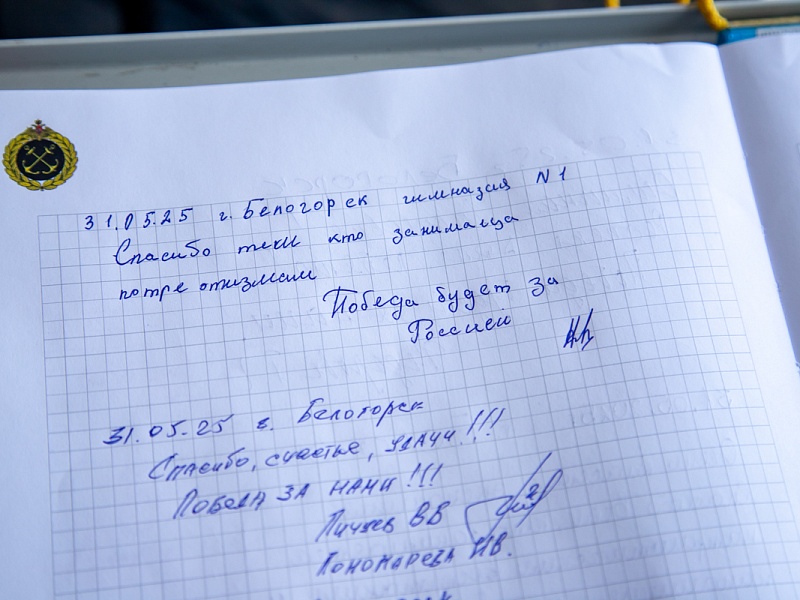 31.05.25 г. Белогорск гимназия N1
Спасибо теки кто занимаеца
потреотизмам
Победа будет за
Россией
31.05.25 г. Белогорск
Спасибо, счастье, удачи!!!
Победа за нами!!!
ВВ
Пономарева НВ.